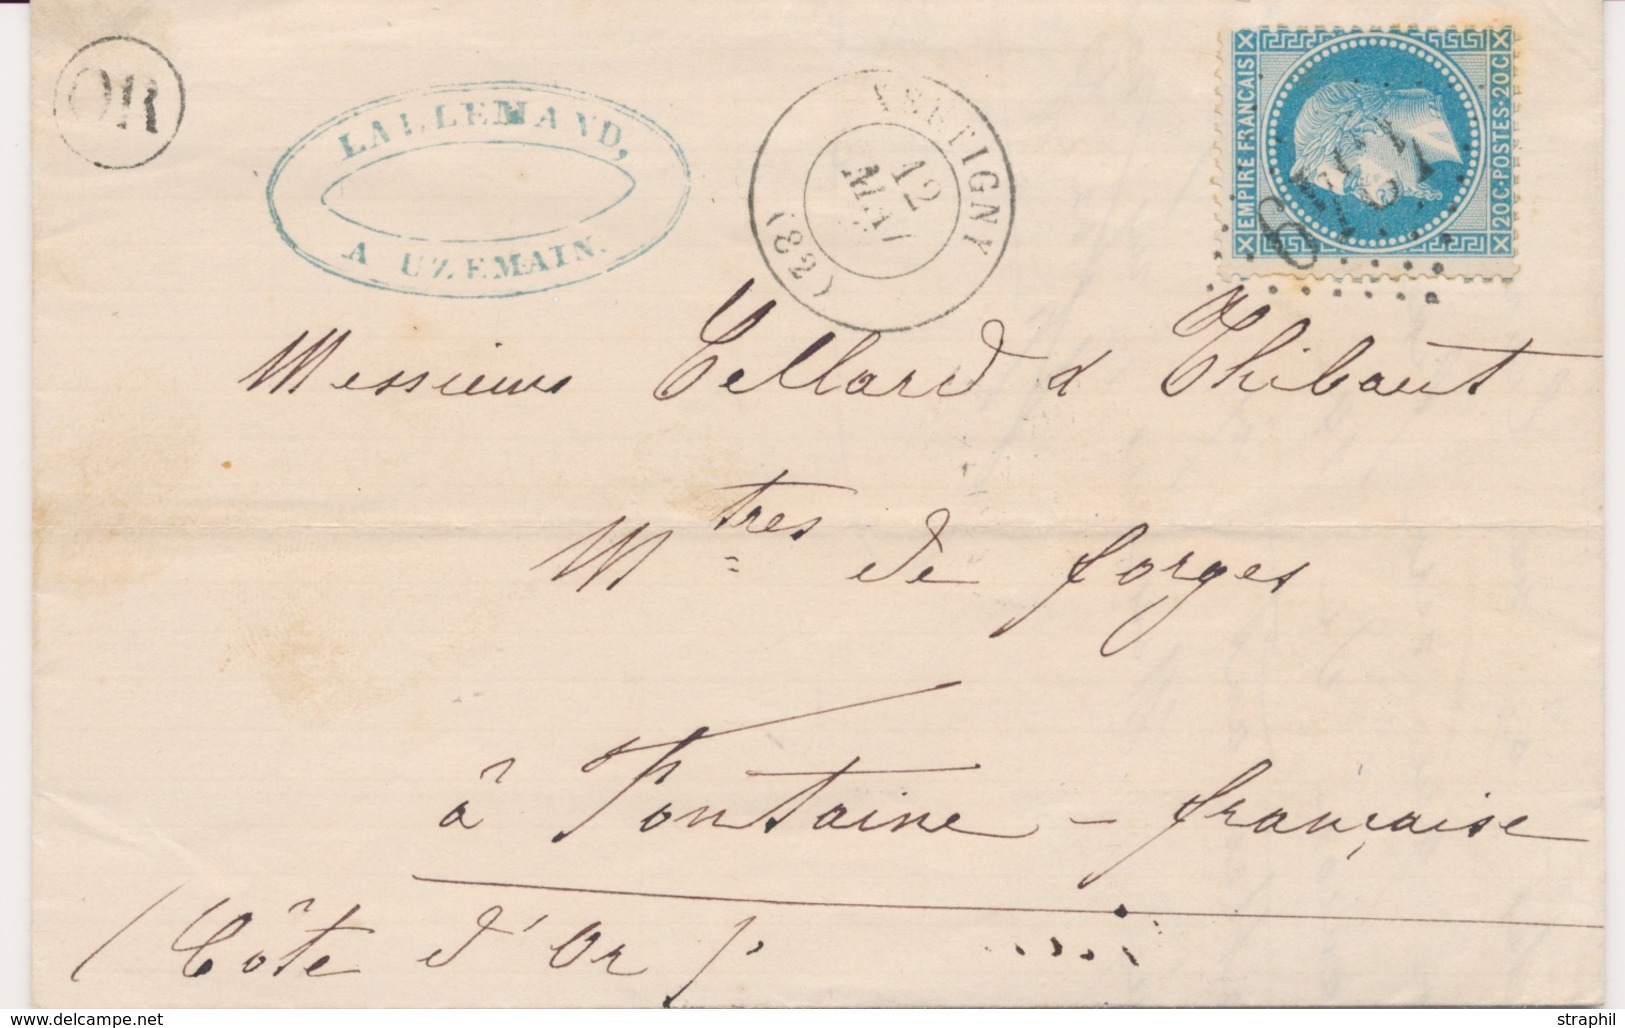 OR
LALLEMAND,
A UZEMAIN.
XERTIGNY
12
MAI
(82)
EMPIRE FRANCAIS
20C·POSTES·20C
Messieurs Cellard & Thibaut
Mtres de forges
à Fontaine-française
(Côte d'Or)
www.delcampe.net
straphil